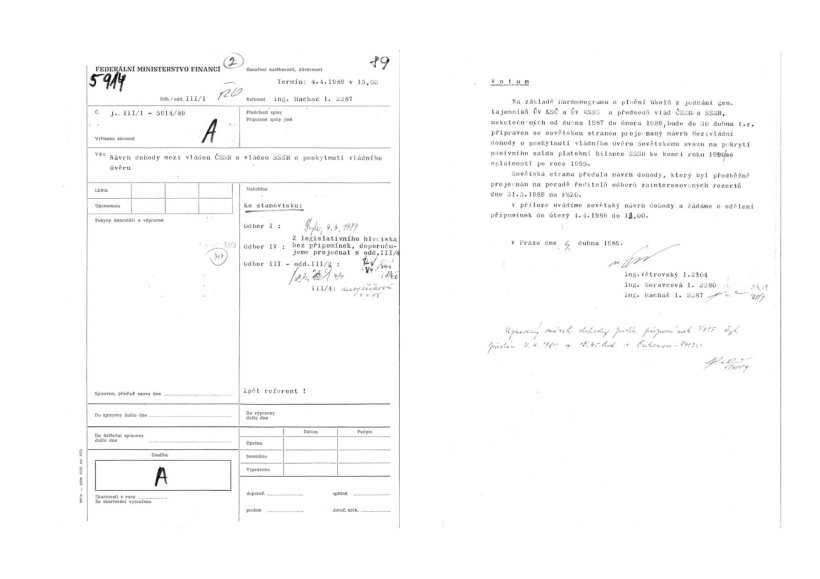 2
89
FEDERÁLNÍ MINISTERSTVO FINANCÍ
Označení naléhavosti, důvěrnosti
5914
Termín: 4.4.1989 v 15,00
Odb./odd. III/1
Referent Ing. Rachač l. 2287
Č. j.. III/1 - 5914/89
Předchozí spisy
Připojené spisy jiné
A
Vyřízeno zároveň
Věc Návrh dohody mezi vládou ČSSR a vládou SSSR o poskytnutí vládního
úvěru
Lhůta
Upomenuto
Pokyny kanceláři a výpravně
Nahlédne
Ke stanovisku:
Odbor I :
4.4.1989
Z legislativního hlediska
Odbor IV : bez připomínek, doporuču-
jeme projednat s odd.III/4
Odbor III - odd.III/2 :
III/4:
Spisovno, předlož znovu dne
Zpět referent !
Do spisovny došlo dne
Do výpravny
došlo dne
Do ústřední spisovny
došlo dne
Datum
Podpis
Opsáno
Srovnáno
Vypraveno
Značka
A
Skartovati v roce
Ze skartování vyloučeno
doporuč.
spěšně
poslem
doruč. sech.
V o t u m
Na základě Harmonogramu o plnění úkolů z jednání gen.
tajemníků ÚV KSČ a ÚV KSSS a předsedů vlád ČSSR a SSSR,
uskutečněných od dubna 1987 do února 1989, bude do 30 dubna t.r.
připraven se sovětskou stranou projednaný návrh Mezivládní
dohody o poskytnutí vládního úvěru Sovětskému svazu na pokrytí
pasivního salda platební bilance SSSR ke konci roku
splatností po roce 1995.
Sovětská strana předala návrh dohody, který byl předběžně
projednán na poradě ředitelů odborů zainteresovaných rezortů
dne 31.3.1989 na FMZO.
V příloze uvádíme sovětský návrh dohody a žádáme o sdělení
připomínek do úterý 4.4.1989 do
V Praze dne 4 dubna 1989.
Ing.Větrovský l.2104
Ing. Moravcová l. 2280
Ing. Rachač l. 2287
Upravený návrh dohody podle připomínek FMF byl
4.4.1989 v 15,45 hod